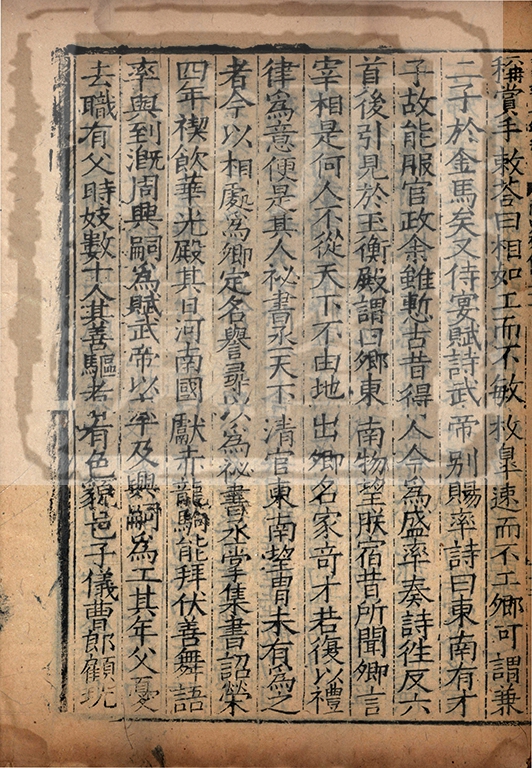 稱賞手敕荅曰相如工而不敏枚臯速而不工卿可謂兼
二子於金馬矣又侍宴賦詩武帝別賜率詩曰東南有才
子故能服官政余雖慙古昔得人今為盛率奏詩徃反六
首後引見於玉衡殿謂曰卿東南物望朕宿昔所聞卿言
宰相是何人不從天下不由地出卿名家竒才若復以禮
律為意便是其人祕書丞天下清官東南望胄未有為之
者今以相處為卿定名譽尋以為祕書丞掌集書詔榮
四年禊飲華光殿其日河南國獻赤龍駒能拜伏善舞語
率與到溉周興嗣為賦武帝以率及興嗣為工其年父憂
去職有父時妓數十人其善驅者有色貌邑子儀曹郎顧玩